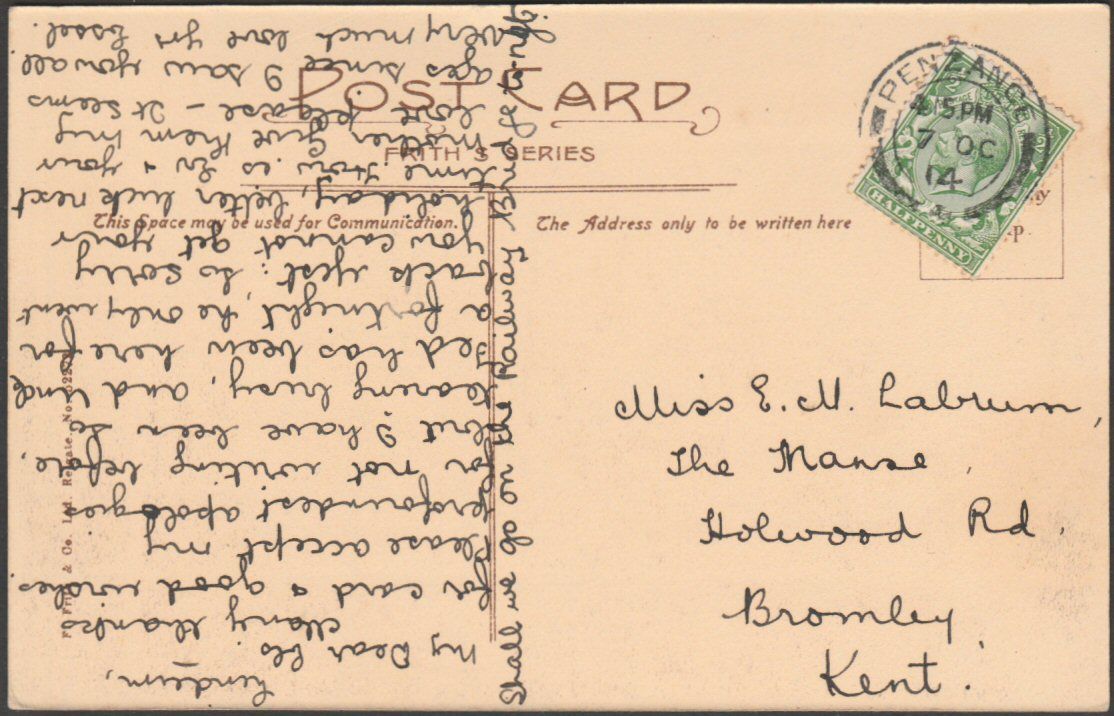 POST CARD
FRITH'S SERIES
This Space may be used for Communication.
The Address only to be written here
PENZANCE
4.15 PM
7 OC
14
HALFPENNY
Miss E. M. Labrum,
The Manse,
Holwood Rd.
Bromley,
Kent.
My Dear Els.
Many thanks
for card & good wishes
Please accept my
profoundest apologies
for not writing before,
but I have been so
busy, and
Ted has been here for
a fortnight, he only went
back yest: so sorry
you cannot get your
holiday, better luck next
time. How is Lv & your
mother give them my
love please – It seems
ages since I saw you all
Very much love yrs
Shall we go on the Railway Bridge to-nyt.
F. Frith & Co. Ltd. Reigate. No.